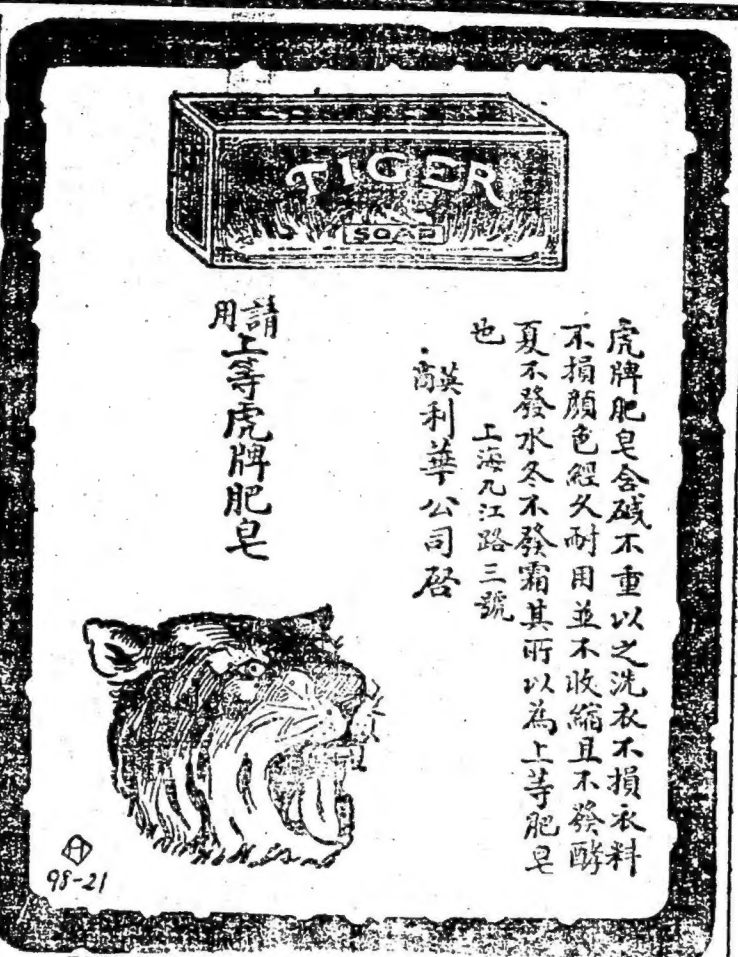 TIGER
SOAP
虎牌肥皂含碱不重以之洗衣不損衣料
不損顏色經久耐用並不收縮且不發酵
夏不發水冬不發霜其所以為上等肥皂
也
上海九江路三號
英商利華公司啓
請用上等虎牌肥皂
98-21